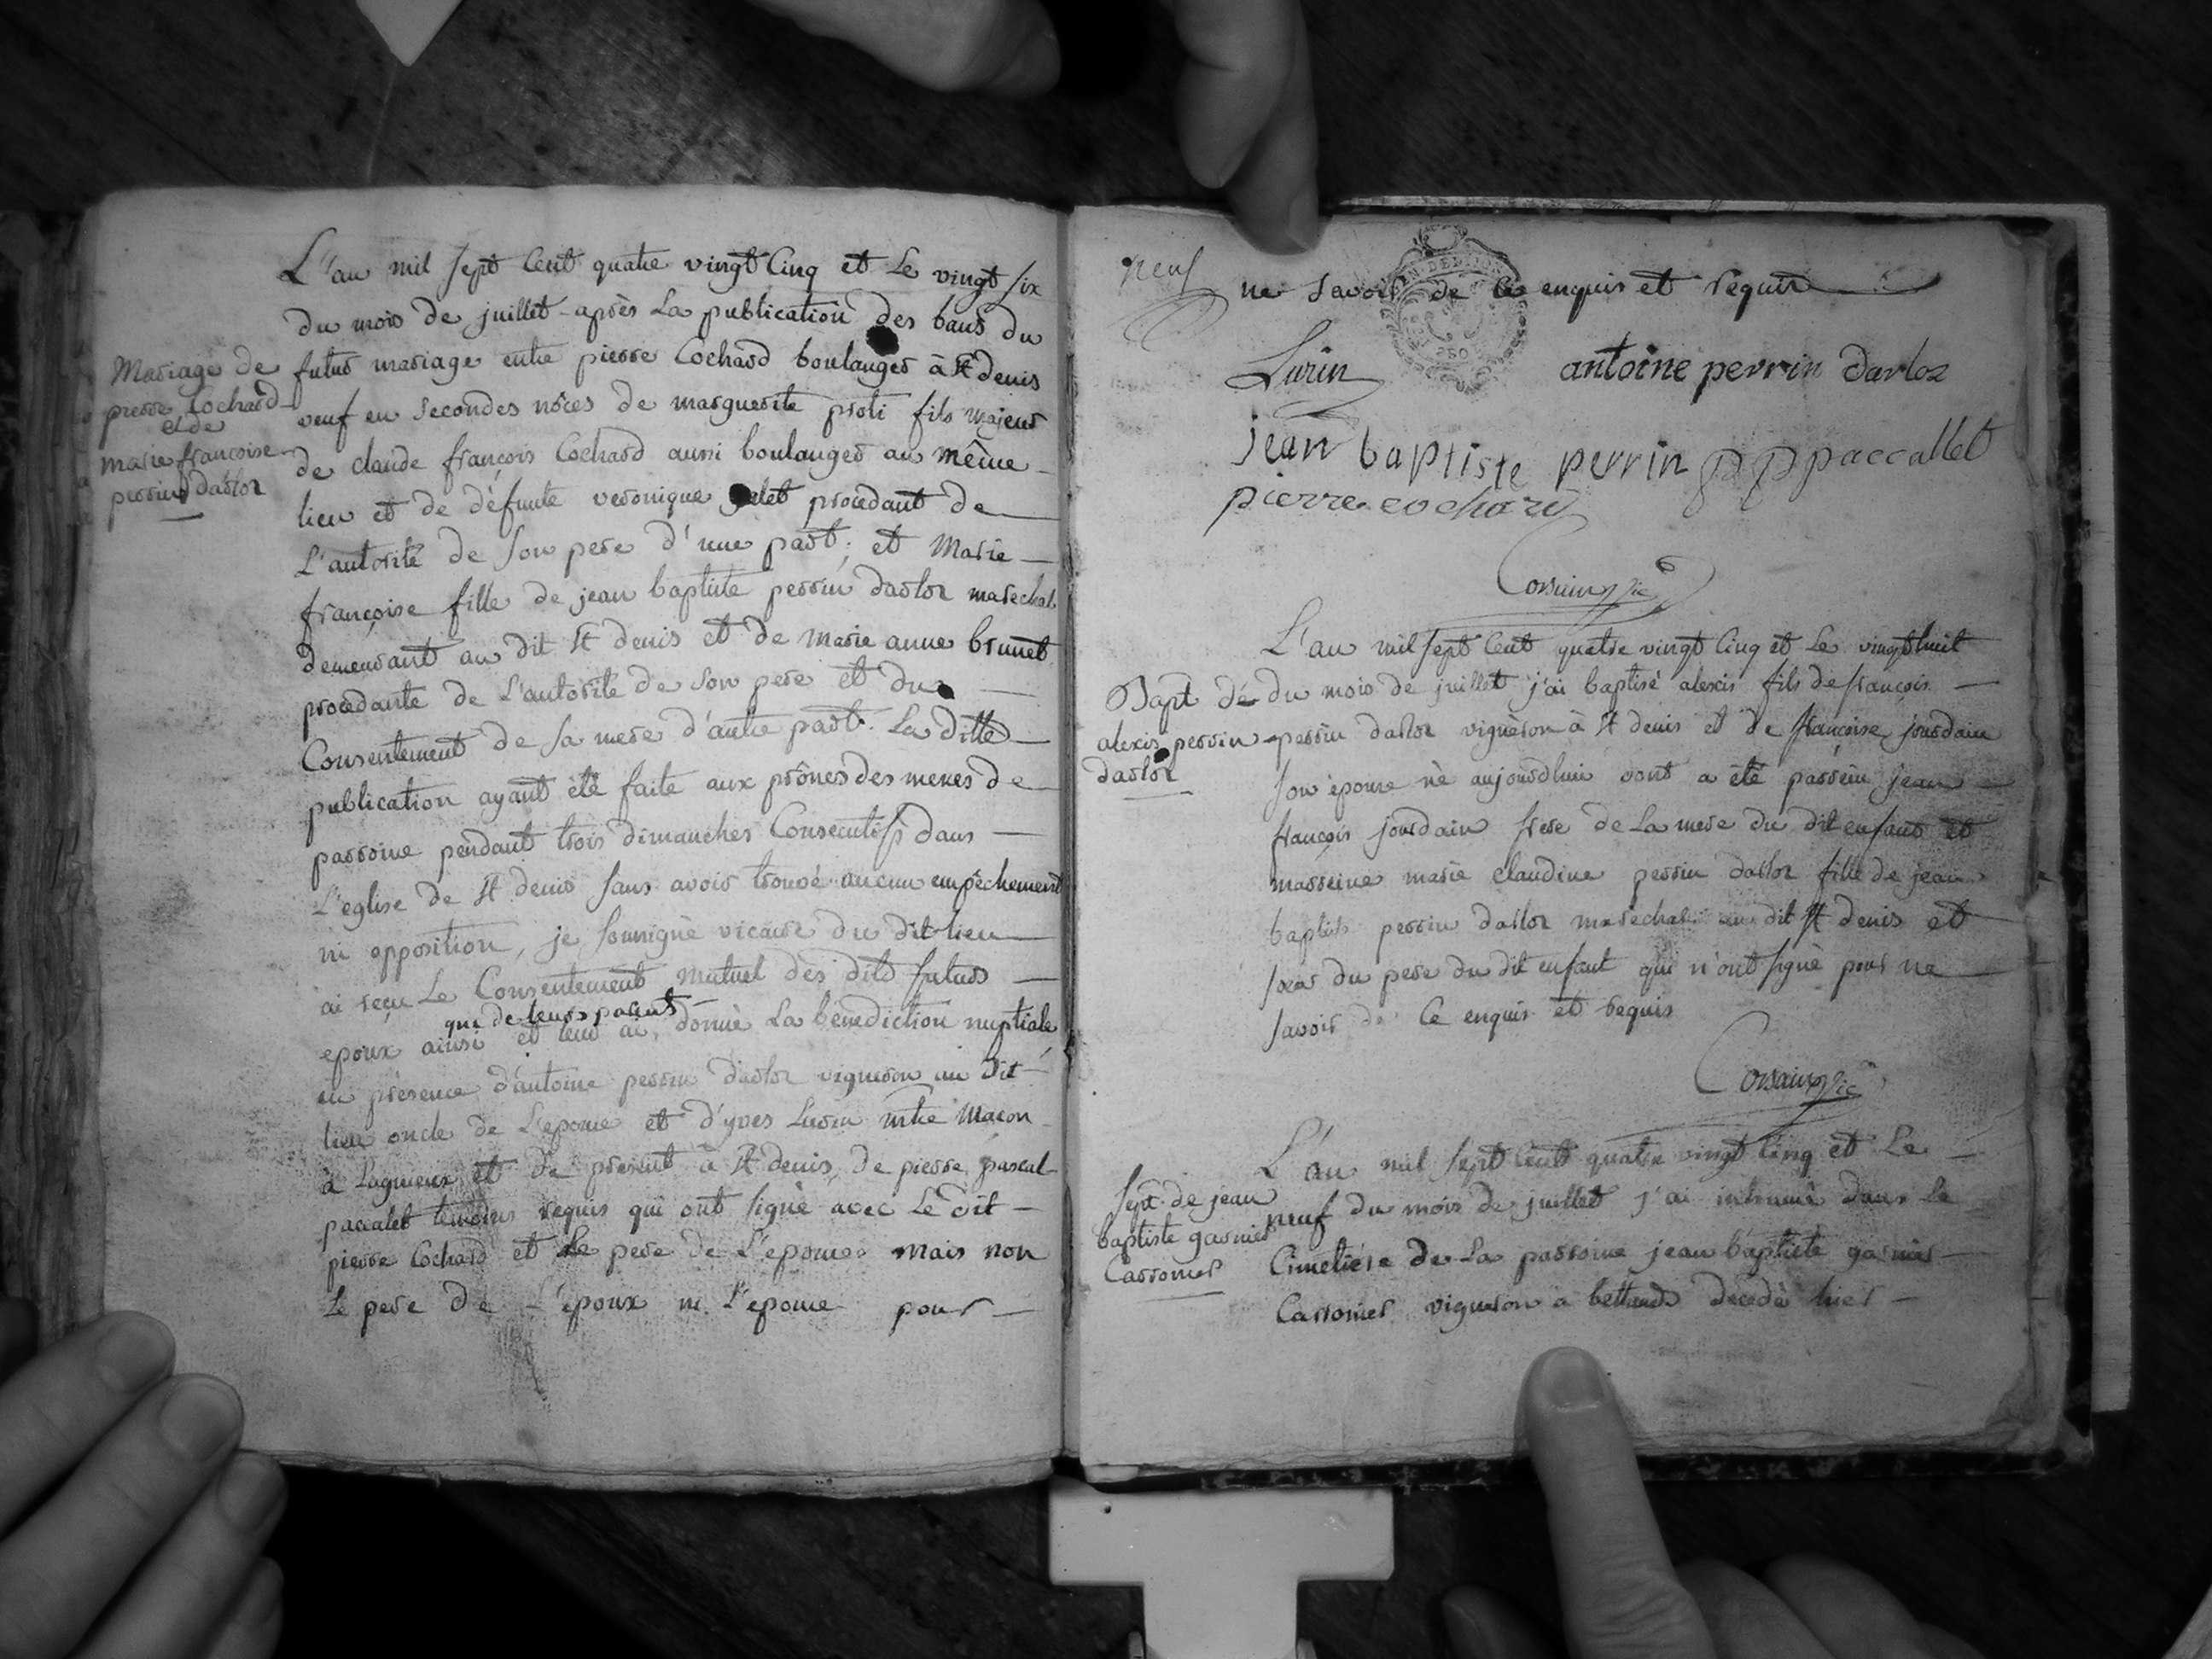 L'an mil sept Cent quatre vingt Cinq et Le vingt six
du mois de juillet après La publication des bans du
Mariage de
pierre Cochard
et de
marie françoise
perrin darloz
futur mariage entre pierre Cochard boulanger à St denis
veuf en secondes nôces de marguerite proti fils majeur
de claude françois Cochard aussi boulanger au même
lieu et de défunte veronique procedant de
L'autorité de son pere d'une part; et Marie
françoise fille de jean baptiste perrin darloz marechal
demeurant au dit St denis et de marie anne brunet
procedante de L'autorité de son pere et du
Consentement de sa mere d'autre part. La ditte
publication ayant été faite aux prônes des messes de
parroisse pendant trois dimanches Consecutifs dans
L'eglise de St denis sans avoir trouvé aucun empêchement
ni opposition, je soussigné vicaire du dit lieu
ai reçu Le Consentement mutuel des dits futurs
que de leurs parents
epoux ainsi et leur ai donné La bénediction nuptiale
en présence d'antoine perrin darloz vigneron au dit
lieu oncle de L'epouse et d'yves Lurin mtre Maçon
à Lagnieux et de present à St denis, de pierre pascal
paccalet temoins requis qui ont signé avec Le dit
pierre Cochard et Le pere de L'epouse mais non
Le pere de L'epoux ni L'epouse pour
neuf
ne savoir de ce enquis et requis
Lurin antoine perrin darloz
jean baptiste perrin p p paccallet
pierre cochard
Corsain vic
L'an mil sept Cent quatre vingt Cinq et Le vingt huit
Bapt de
alexis perrin
darloz
du mois de juillet j'ai baptisé alexis fils de françois
perrin darloz vigneron à St denis et de françoise jourdain
son épouse né aujourdhui dont a été parrein jean
françois jourdain frere de La mere du dit enfant et
marreine marie claudine perrin darloz fille de jean
baptiste perrin darloz marechal au dit St denis et
soeur du pere du dit enfant qui n'ont signé pour ne
savoir de Ce enquis et requis
Corsain vic
L'an mil sept Cent quatre vingt Cinq et Le
Sept. de jean
baptiste garnier
Carronier
neuf du mois de juillet j'ai inhumé dans Le
Cimetiére de La parroisse jean baptiste garnier
Carronier vigneron a decedé hier